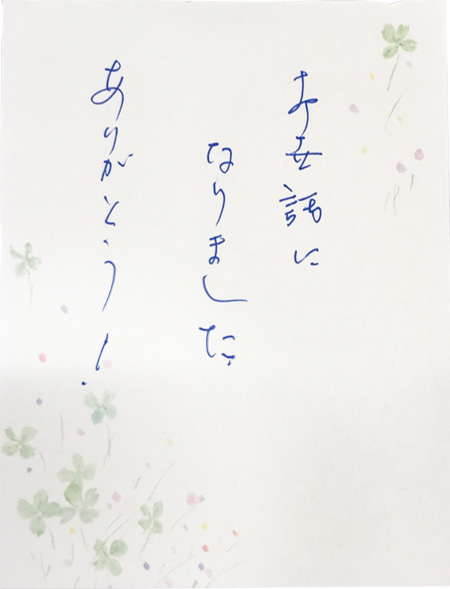 お世話に
なりました
ありがとう!